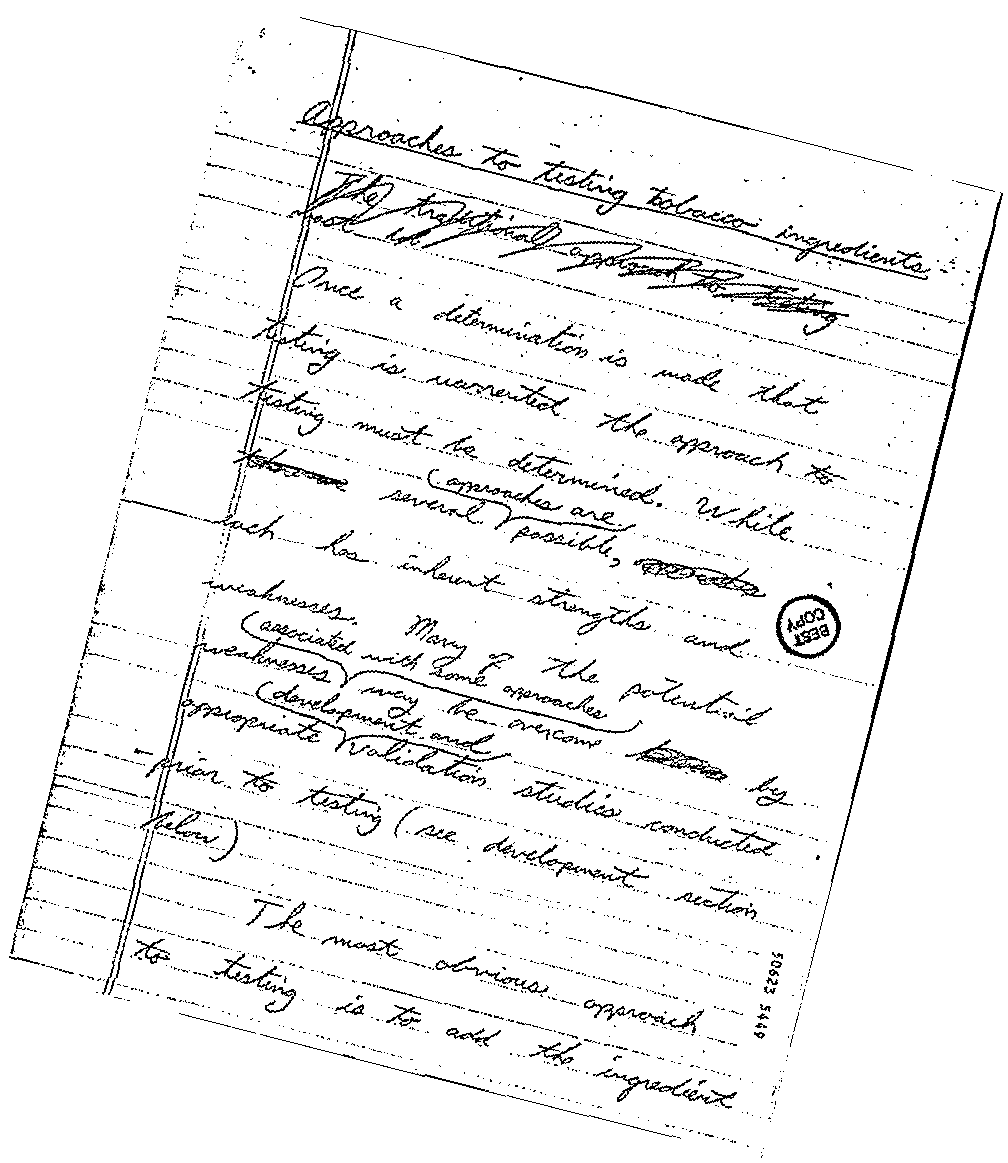 Approaches to testing tobacco ingredients
The traditional approach to testing
most is
Once a determination is made that
testing is warrented the approach to
testing must be determined. While
several approaches are possible,
each has inherent strengths and
weaknesses. Many of the potential
weaknesses associated with some approaches may be overcome by
appropriate development and validation studies conducted
prior to testing (see development section
below)
The most obvious approach
to testing is to add the ingredient
BEST
COPY
50623 5449